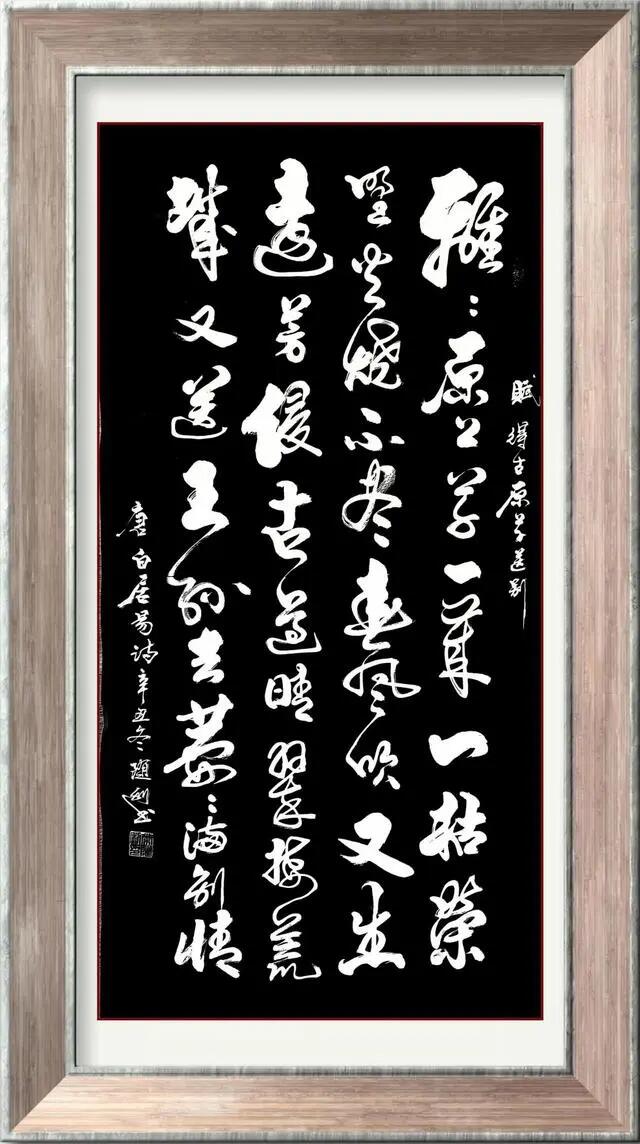 賦得古原草送别
離〻原上草一歲一枯榮
野火燒不盡春風吹又生
遠芳侵古道晴翠接荒
城又送王孫去萋〻滿别情
唐白居易詩辛丑冬